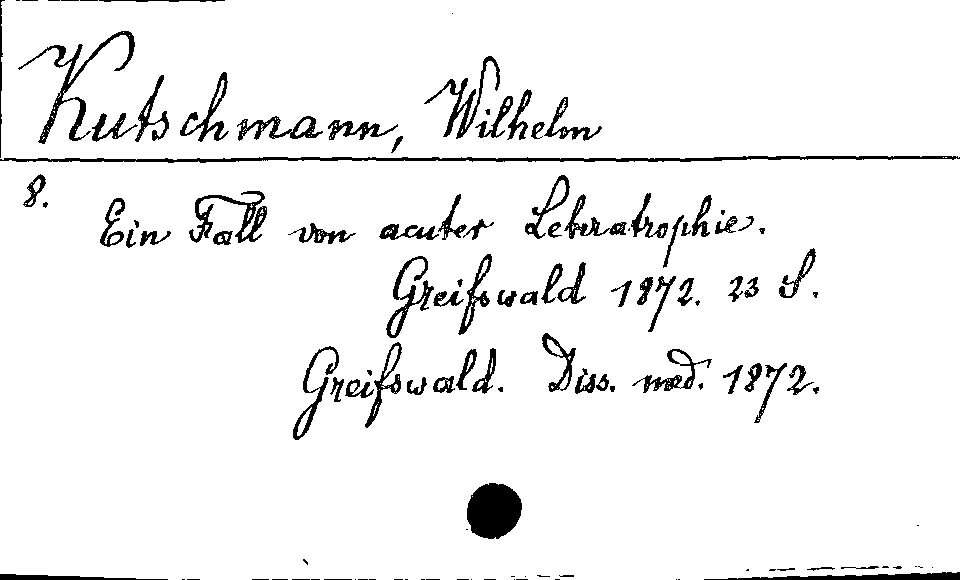 Kutschmann, Wilhelm
8.
Ein Fall von acuter Leberatrophie.
Greifswald 1872. 23 S.
Greifswald. Diss. med. 1872.